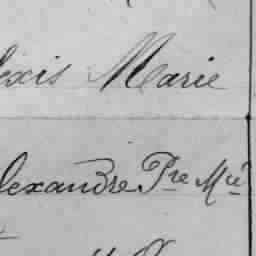 lexis Marie
lexandre Pre Mie